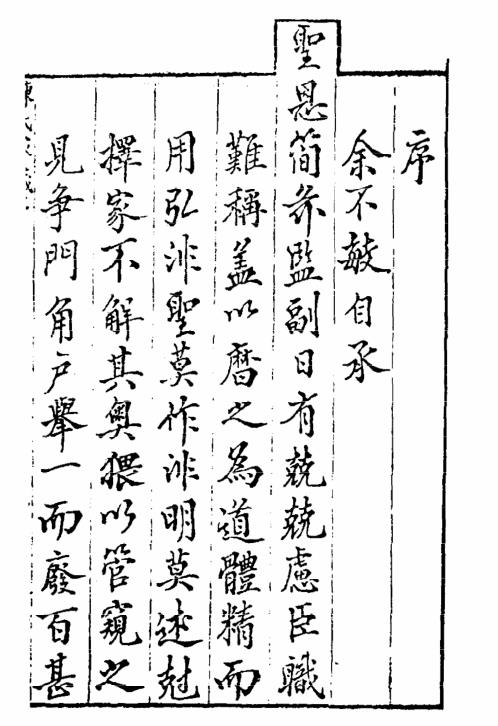 序
余不敏自承
聖恩簡畀監副日有兢兢慮臣職
難稱蓋以曆之為道體精而
用弘非聖莫作非明莫述尅
擇家不解其奧猥以管窺之
見爭門角戶舉一而廢百甚